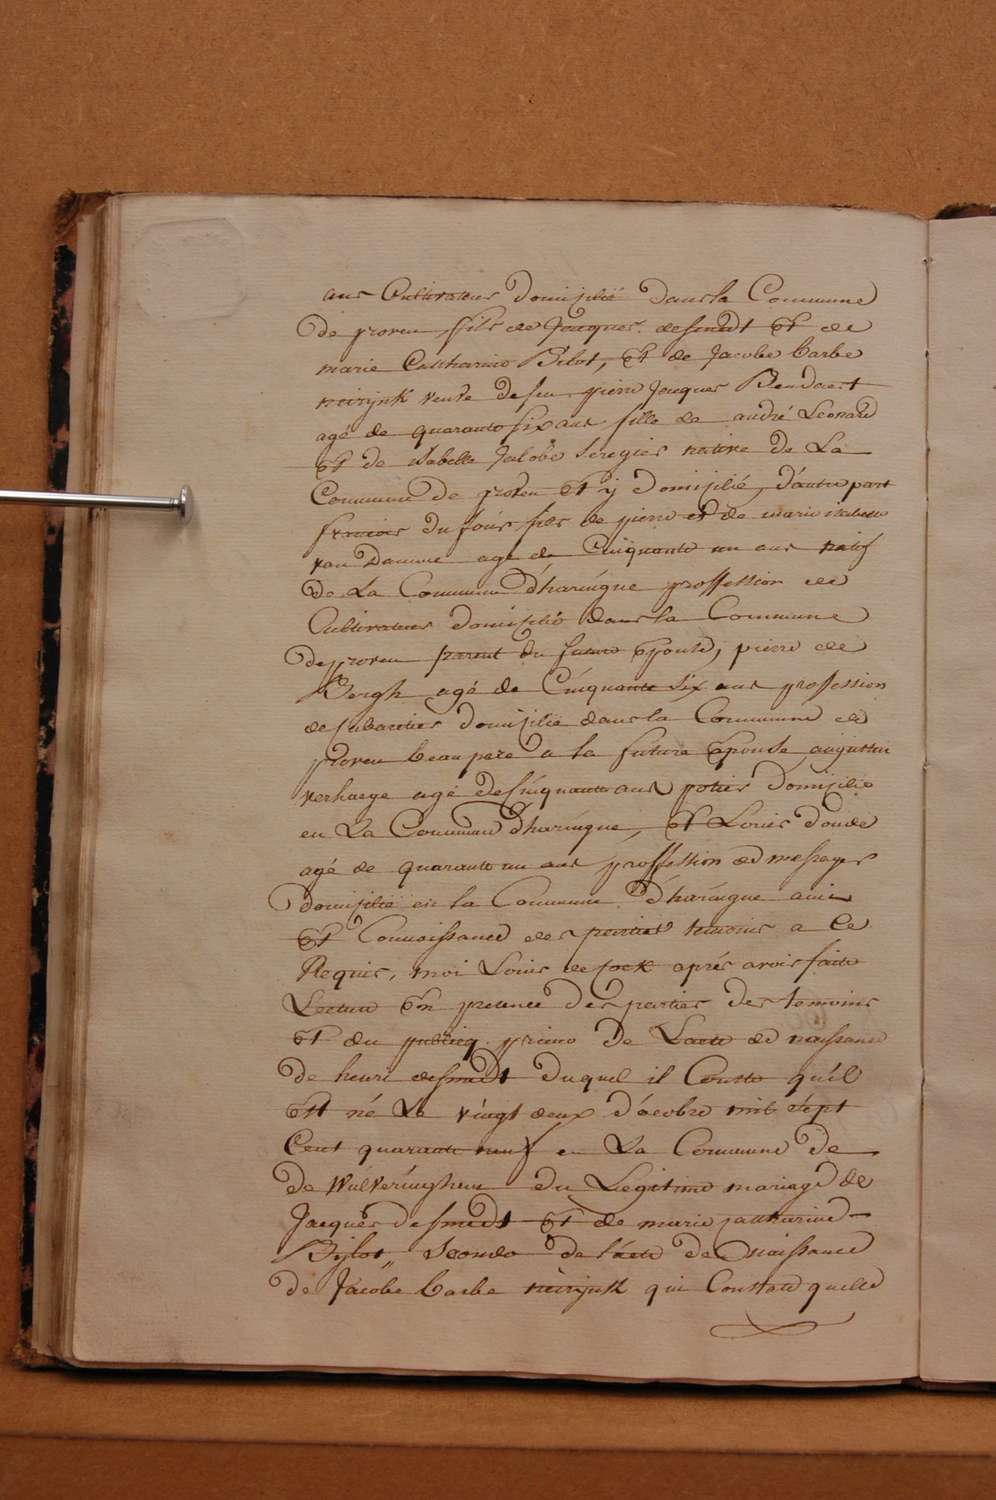 ans Cultivateur Domisilié Dans la Commune
De proven, fils de Jacques desmedt Et de
marie Catharine Bilot, Et de Jacobe barbe
neirynk veuve defeu pierre Jacques Beudaert
agé de quarante six ans fille de andré Leonard
Et de isabelle Jacobe Seregier native de La
Commune de proven Et ÿ Domisilié, D'autre part
francois Du four fils de pierre et de marie isabelle
van Damme agé de Cinquante un ans natif
De La Commune D'haringue proffession de
Cultivateur Domisilié dans la Commune
de proven parent du future Epouse, pierre de
Bergh agé de Cinquante six ans profession
de Domisilié dans la Commune de
proven beaupere a la future Epouse, augustin
verhaege agé de Cinquante ans potier Domisilié
en La Commune D'haringue, Et Louis Donde
agé de quarante un ans proffession de messager
Domisilié en la Commune D'haringue ami
Et Connoissance des parties temoins a Ce
Requis, moi Louis de fock aprés avoir faite
Lecture En presence Des parties des temoins
Et du publicq primo De Lacte de naissance
De henri desmedt Duquel il Conste qu'il
Est né Le vingt deux D'octobre mil Sept
Cent quarante neuf en La Commune De
de Wulveringhem du Legitime mariage de
Jacques Desmedt Et de marie Catharine
Bÿlot,, Secondo De lacte De Naissance
de Jacobe barbe neirijnk qui Constate quelle